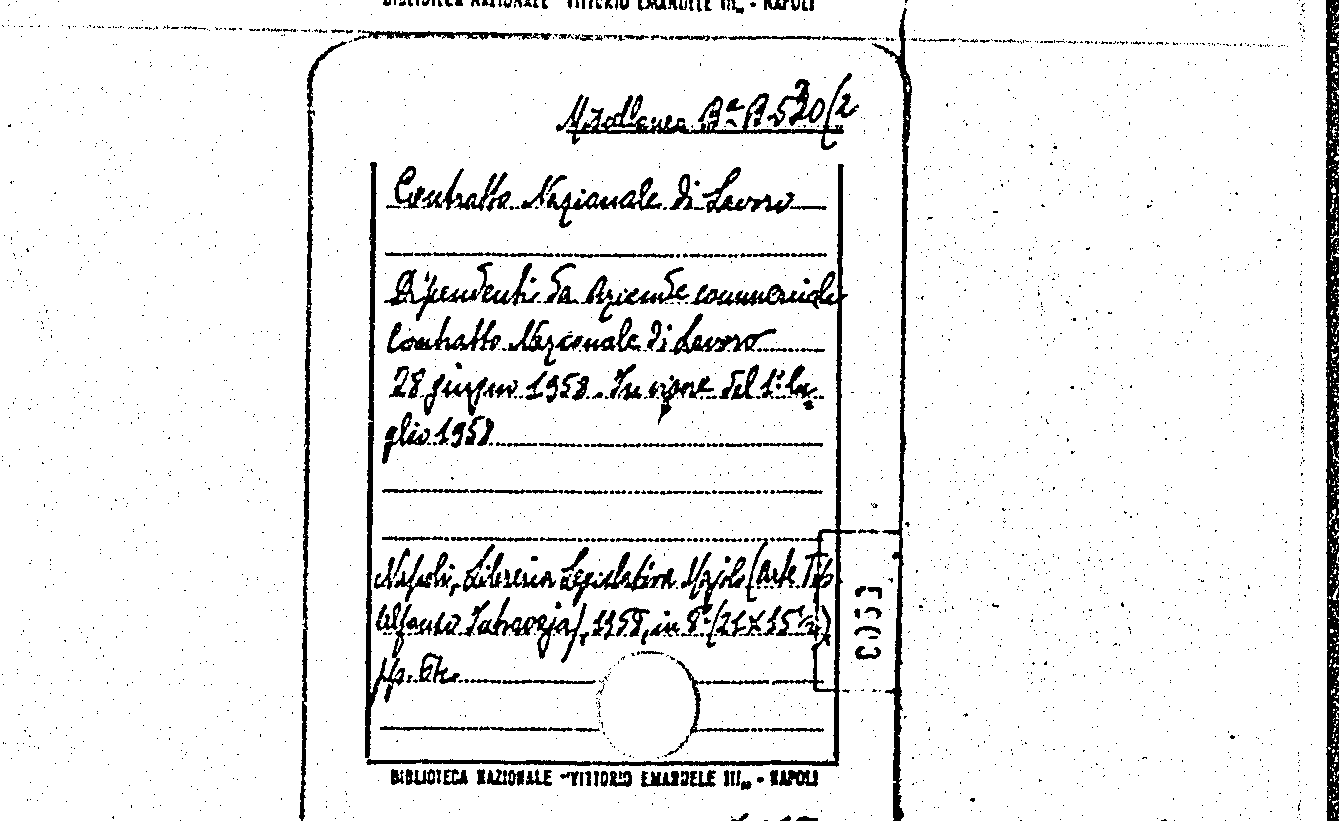 BIBLIOTECA NAZIONALE "VITTORIO EMANUELE III„ - NAPOLI
Miscellanea Bª B 530/2
Contratto Nazionale di Lavoro
Dipendenti da Aziende commerciali
Contratto Nazionale di Lavoro
28 giugno 1958. In vigore del 1º lu=
glio 1958
Napoli, Libreria Legislativa Majolo (Arte Tip.
Alfonso), 1958, in 8º (21X15
pp. 
BIBLIOTECA NAZIONALE "VITTORIO EMANUELE III„ - NAPOLI